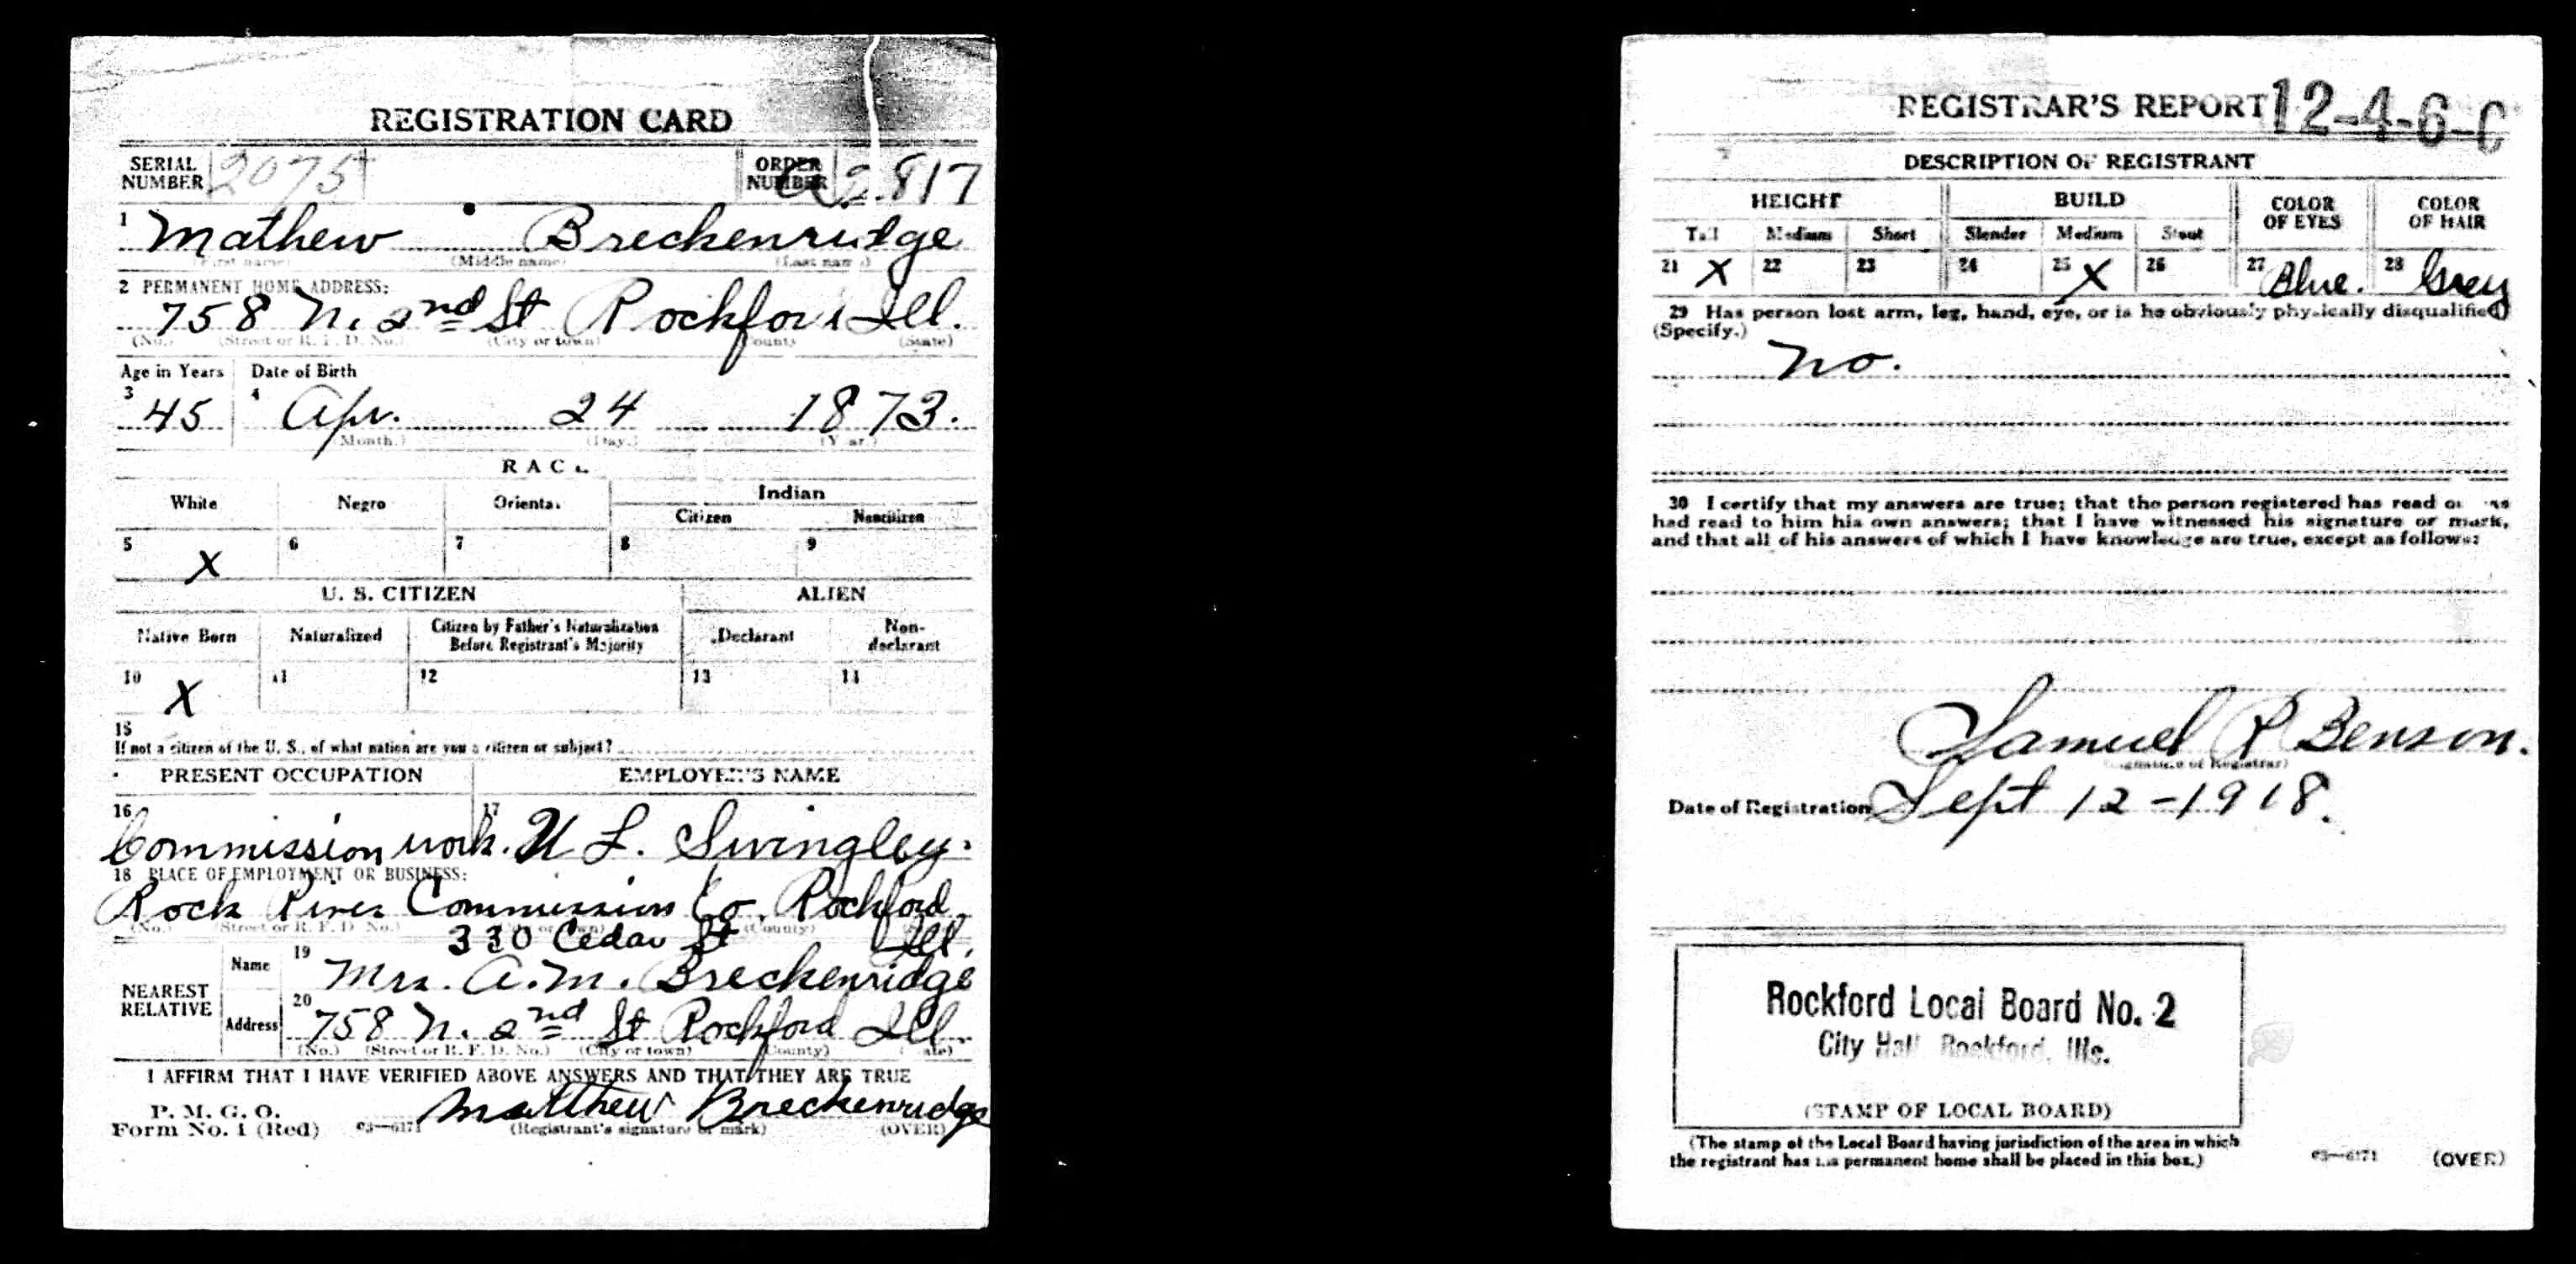 REGISTRATION CARD
SERIAL NUMBER 2075 ORDER NUMBER A2817
1 Mathew Breckenridge
(First name) (Middle name) (Last name)
2 PERMANENT HOME ADDRESS:
758 N. 2nd St Rockford Ill.
(No.) (Street or R. F. D. No.) (City or town) (County) (State)
Age in Years Date of Birth
3 45 4 Apr. 24 1873.
(Month.) (Day.) (Year.)
RACE
White Negro Oriental Indian
Citizen Noncitizen
5 X 6 7 8 9
U. S. CITIZEN ALIEN
Native Born Naturalized Citizen by Father's Naturalization Before Registrant's Majority Declarant Non-declarant
10 X 11 12 13 14
15
If not a citizen of the U. S., of what nation are you a citizen or subject?
PRESENT OCCUPATION EMPLOYER'S NAME
16 Commission work. 17 L. Swingley.
18 PLACE OF EMPLOYMENT OR BUSINESS:
Rock River Commission Co. Rockford,
(No.) (Street or R. F. D. No.) (City or town) (County)
330 Cedar St Ill.
NEAREST RELATIVE
Name 19 Mrs. A. M. Breckenridge
Address 20 758 N. 2nd St Rockford Ill.
(No.) (Street or R. F. D. No.) (City or town) (County) (State)
I AFFIRM THAT I HAVE VERIFIED ABOVE ANSWERS AND THAT THEY ARE TRUE
P. M. G. O.
Form No. 1 (Red) 03—6171 Matthew Breckenridge
(Registrant's signature or mark) (OVER)
REGISTRAR'S REPORT 12-4-6-C
DESCRIPTION OF REGISTRANT
HEIGHT BUILD COLOR OF EYES COLOR OF HAIR
Tall Medium Short Slender Medium Stout
21 X 22 23 24 25 X 26 27 Blue. 28 Grey
29 Has person lost arm, leg, hand, eye, or is he obviously physically disqualified?
(Specify.)
No.
30 I certify that my answers are true; that the person registered has read or has
had read to him his own answers; that I have witnessed his signature or mark,
and that all of his answers of which I have knowledge are true, except as follows:
Samuel R Benson.
(Signature of Registrar)
Date of Registration Sept 12 - 1918.
Rockford Local Board No. 2
City Hall Rockford, Ills.
(STAMP OF LOCAL BOARD)
(The stamp of the Local Board having jurisdiction of the area in which
the registrant has his permanent home shall be placed in this box.)
03—6171 (OVER)